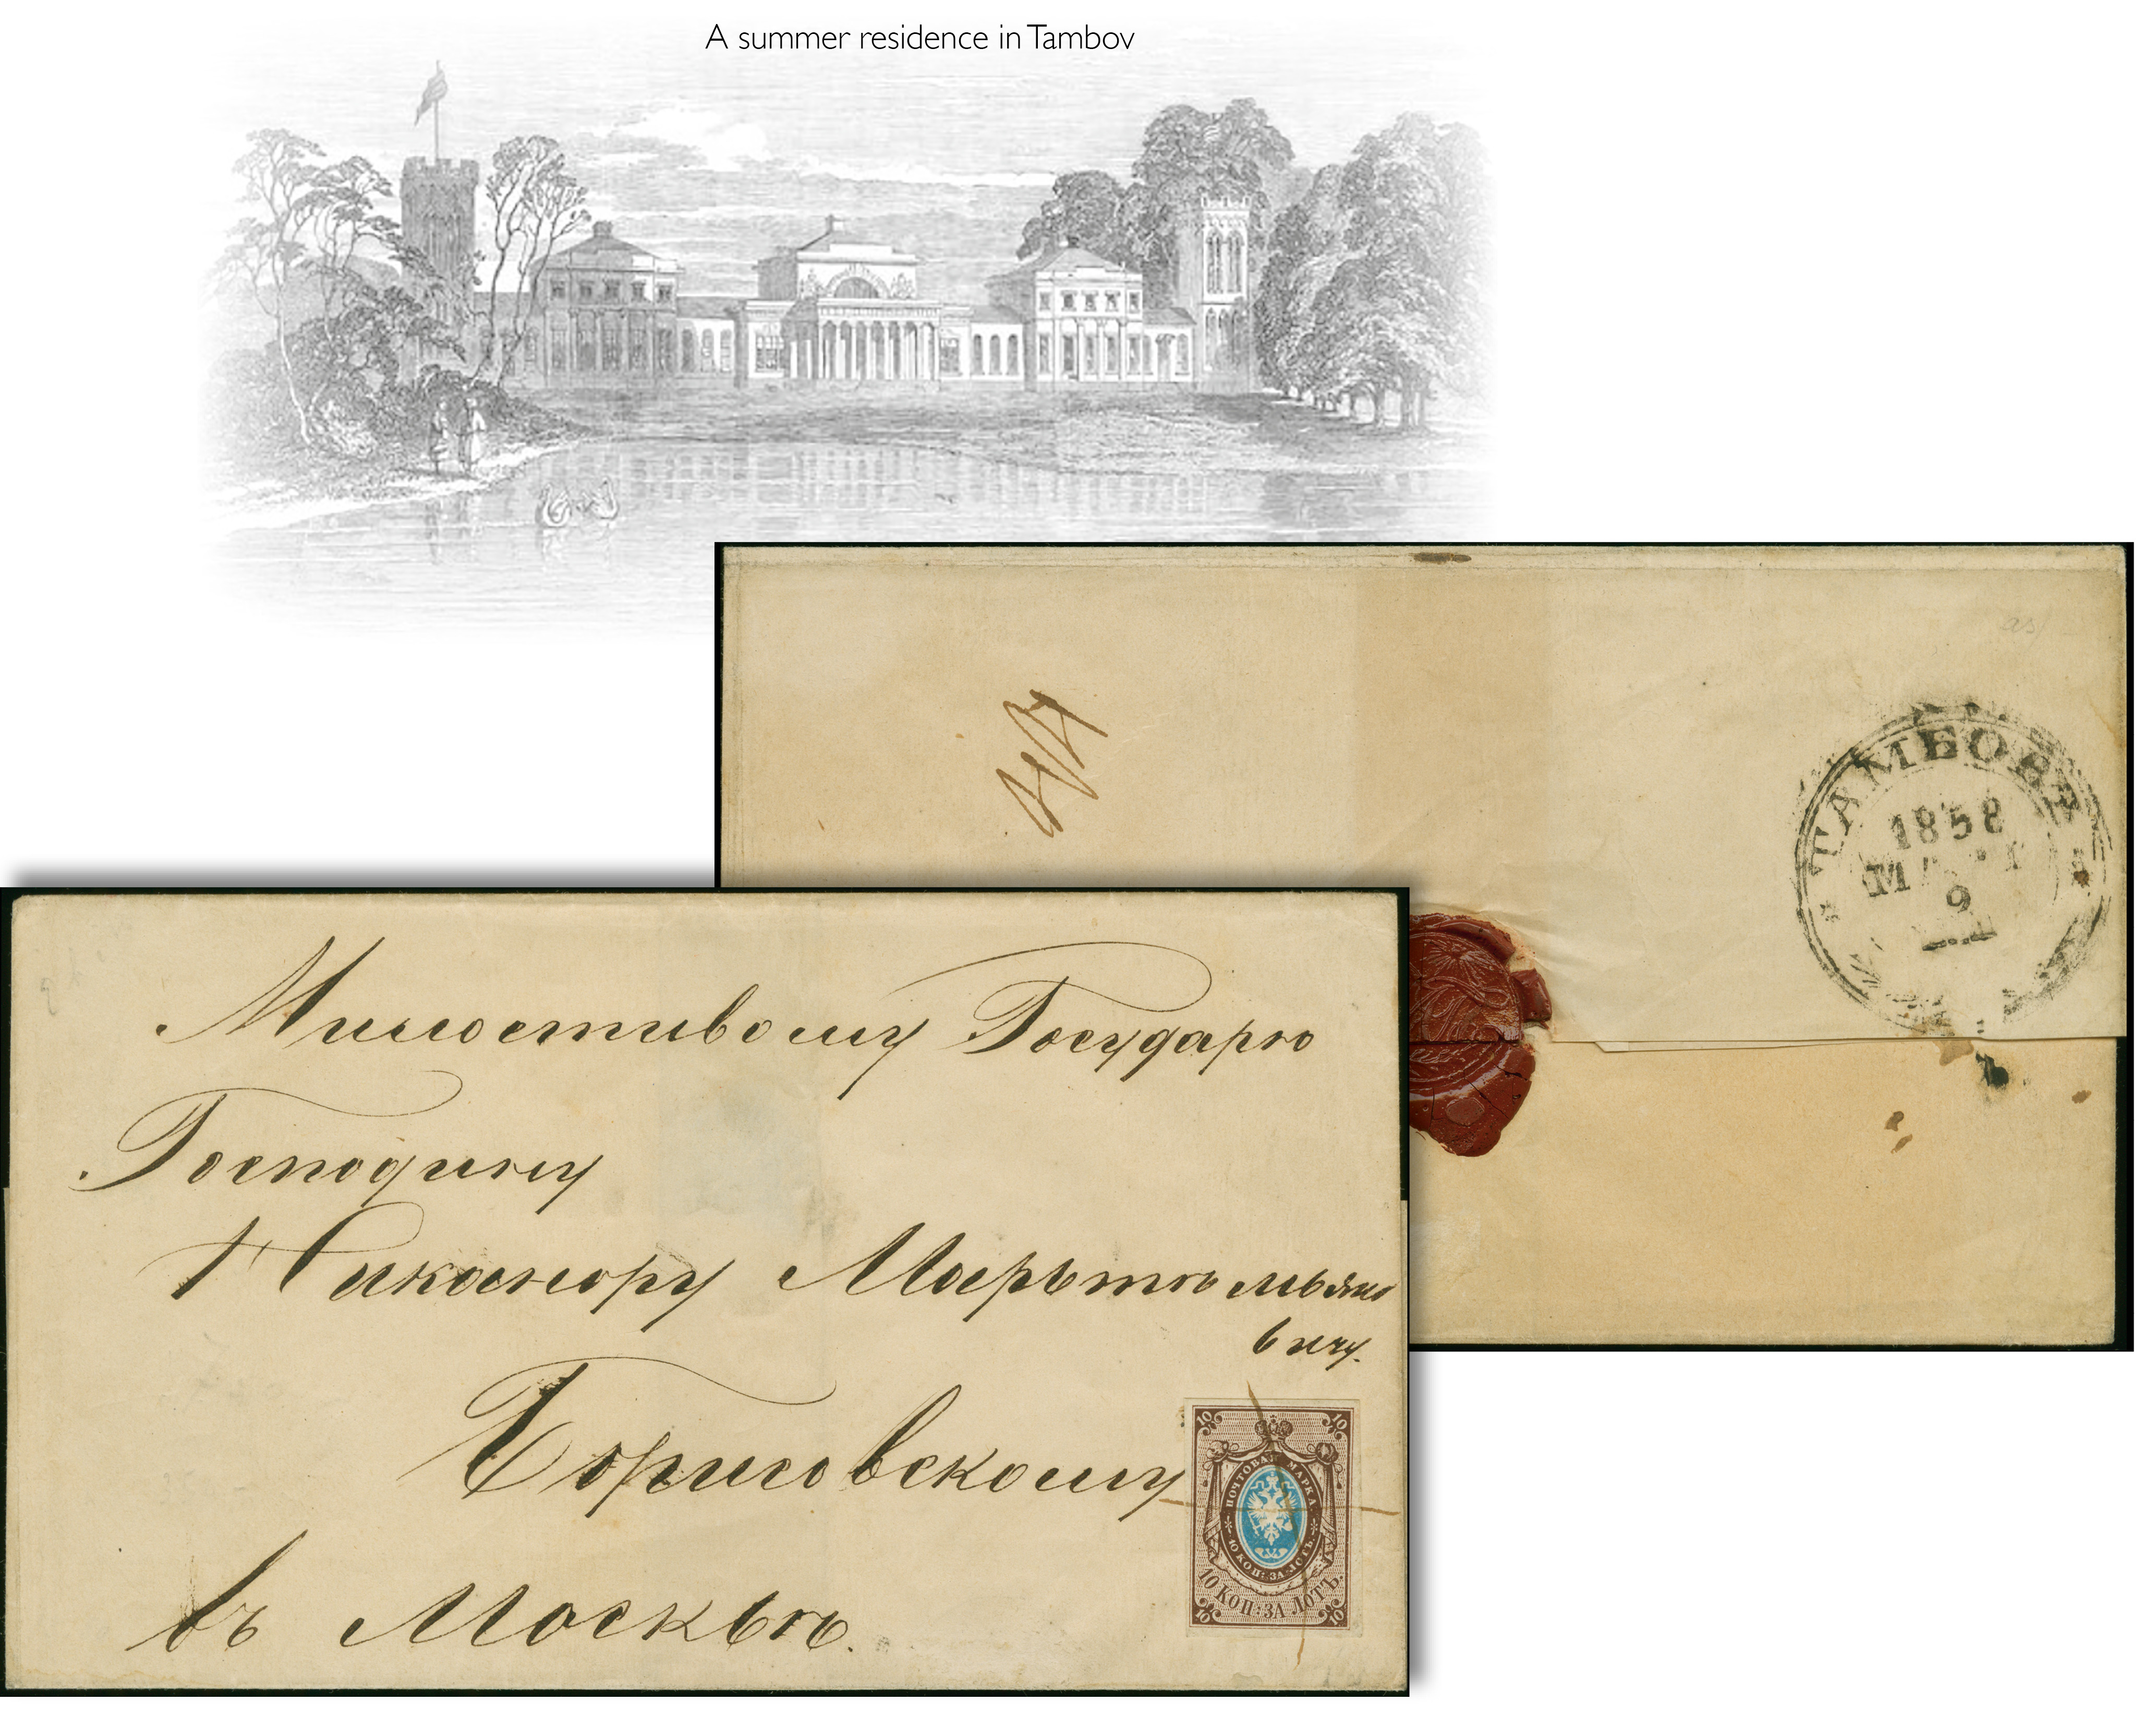 A summer residence in Tambov
as
ТАМБОВЪ
1858
9
Милостивому Государю
Господину
Никанору Мартемьяно
вичу.
Борисовскому
въ Москвѣ.
10 10
ПОЧТОВАЯ МАРКА
10 КОП: ЗА ЛОТЪ.
10 КОП: ЗА ЛОТЪ.
10 10